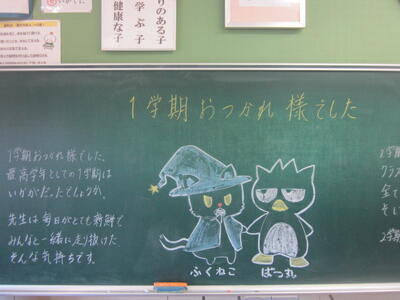 りのある子
学ぶ子
健康な子
1学期おつかれ様でした
1学期おつかれ様でした。
最高学年としての1学期は
いかがだったでしょうか。
先生は毎日がとても新鮮で
みんなと一緒に走り抜けた
そんな気持ちです。
ふくねこ
ばつ丸
クラス
全て
2学期